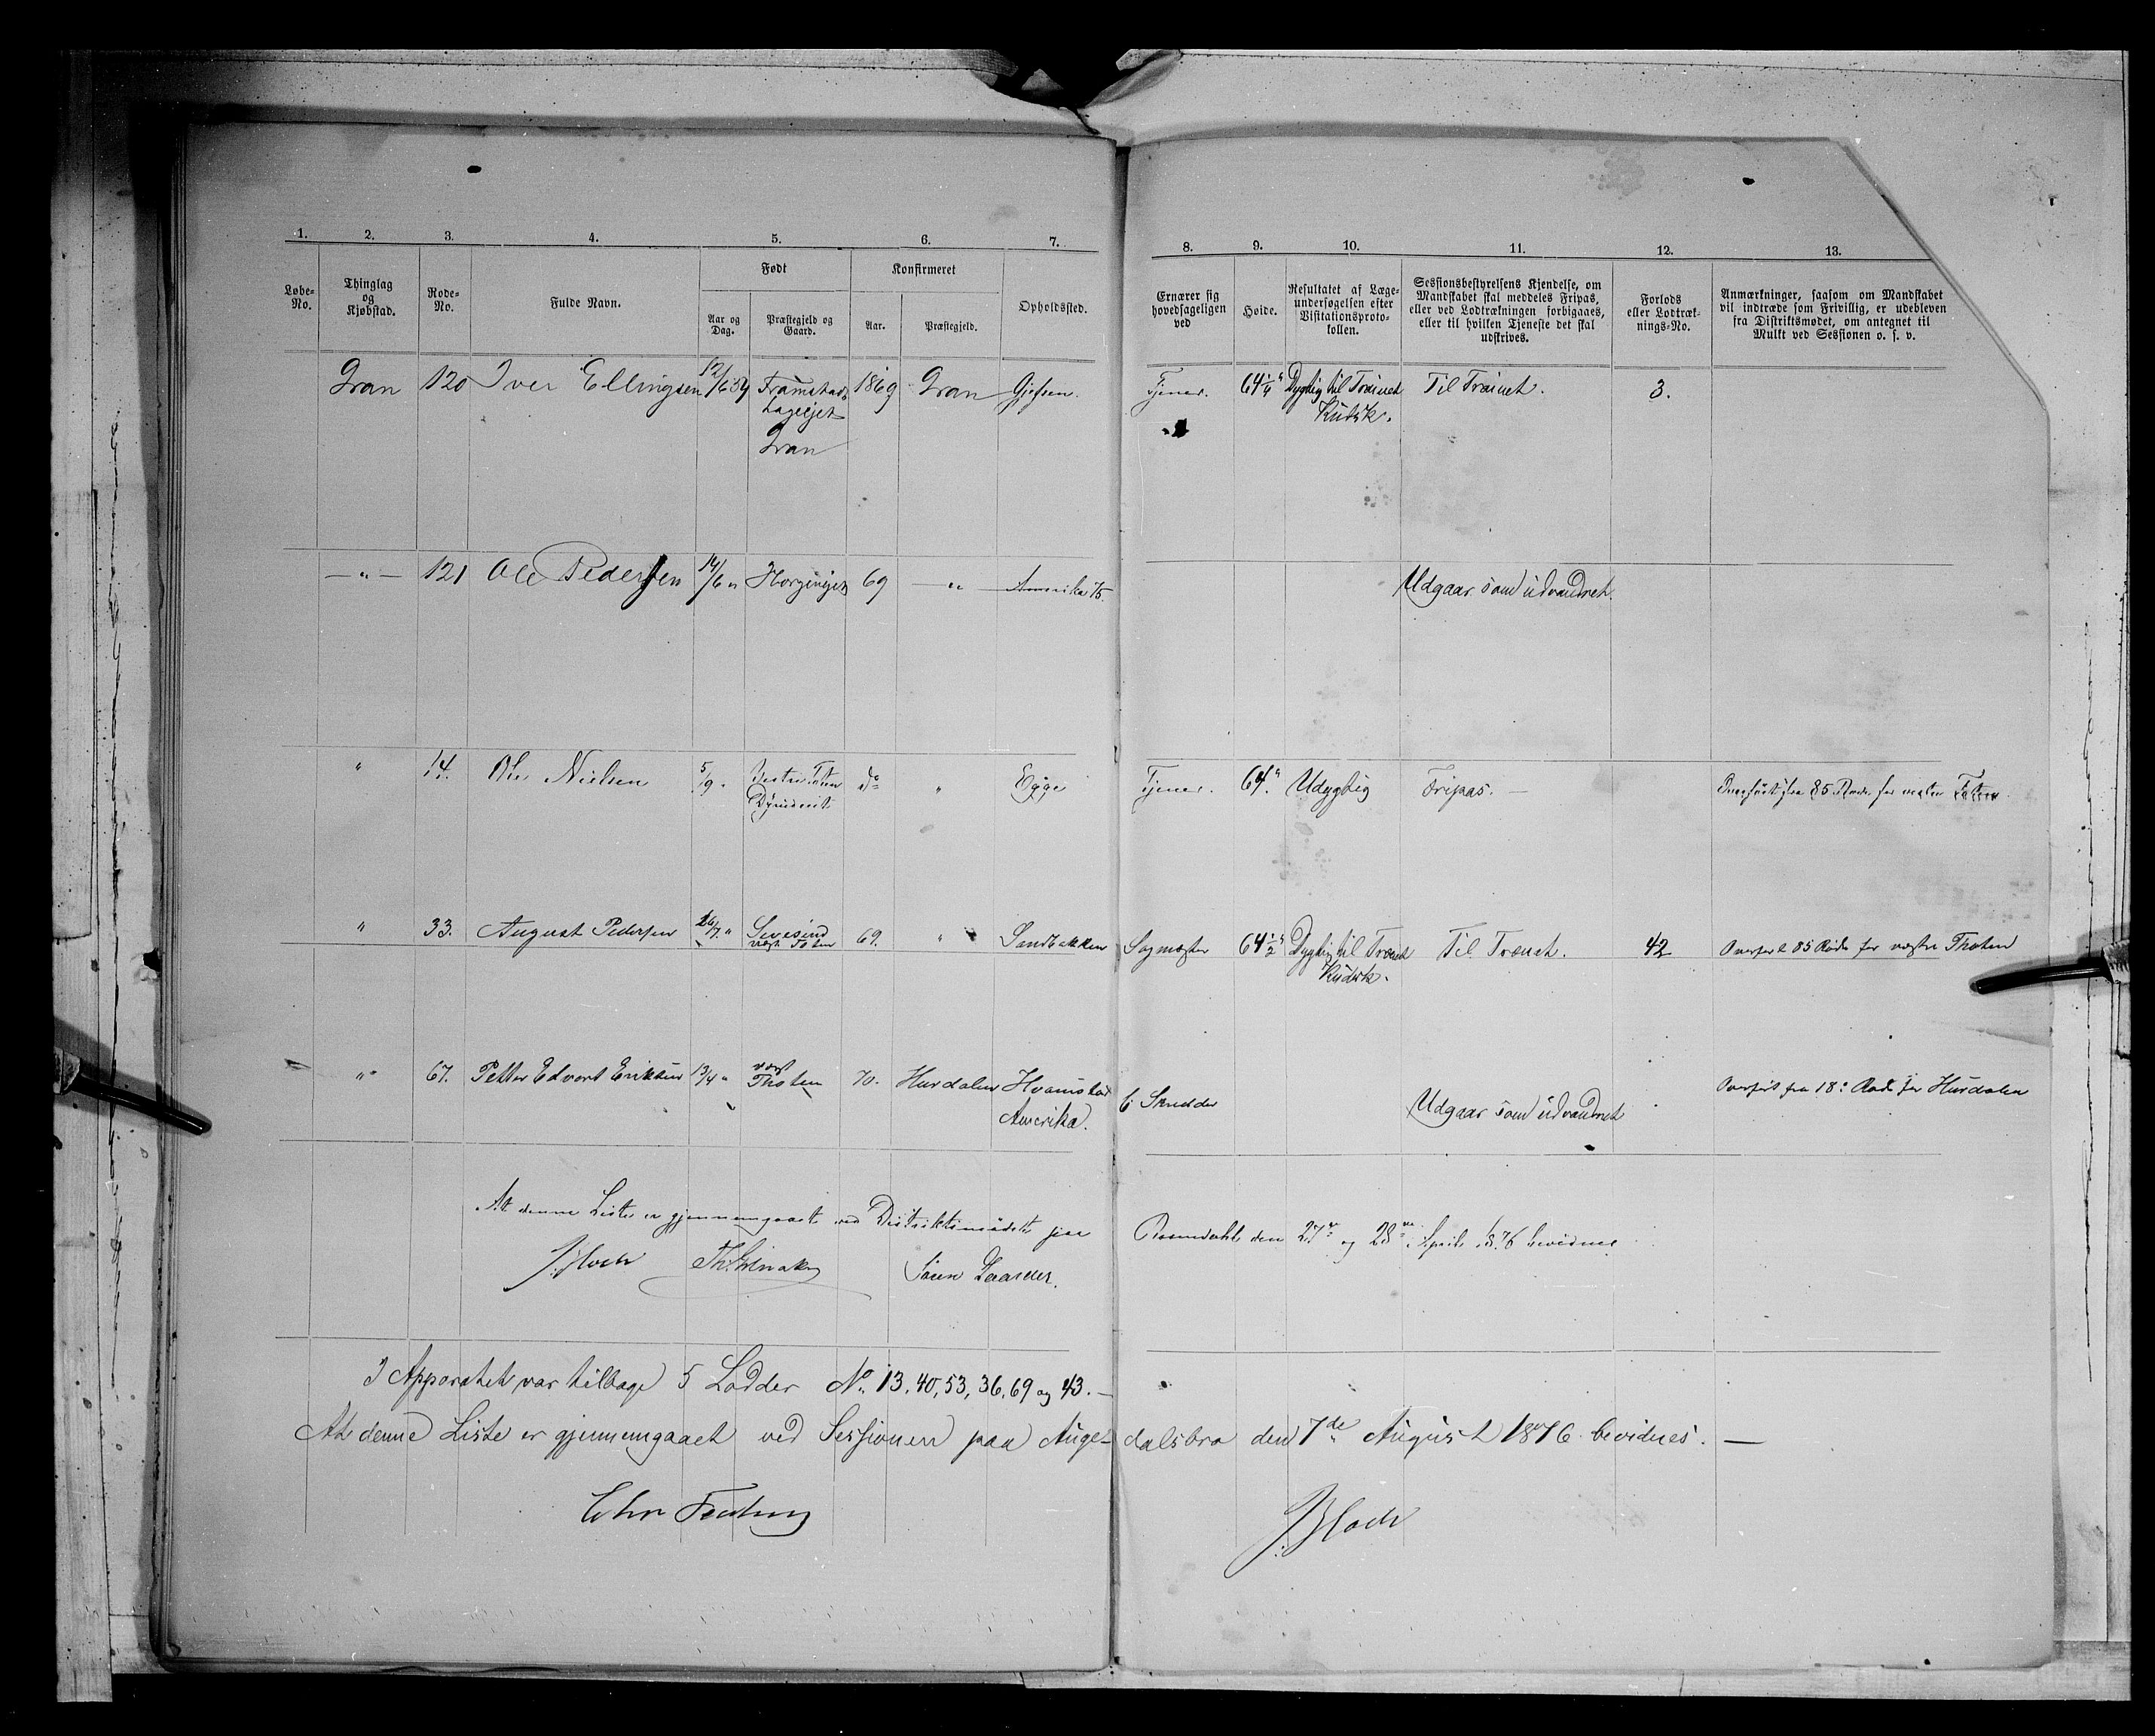 1. 2. 3. 4. 5. 6. 7. 8. 9. 10. 11. 12. 13.
Løbe-
No.
Thinglag
og
Kjøbstad.
Rode-
No.
Fulde Navn.
Født
Aar og
Dag.
Præstegjeld og
Gaard.
Konfirmeret
Aar.
Præstegjeld.
Opholdssted.
Ernærer sig
hovedsageligen
ved
Høide.
Resultatet af Læge-
undersøgelsen efter
Visitationsproto-
kollen.
Sessionsbestyrelsens Kjendelse, om
Mandskabet skal meddeles Fripas,
eller ved Lodtrækningen forbigaaes,
eller til hvilken Tjeneste det skal
udskrives.
Forlods
eller Lodtræk-
nings-No.
Anmærkninger, saasom om Mandskabet
vil indtræde som Frivillig, er udebleven
fra Distriktsmødet, om antegnet til
Mulkt ved Sessionen o. s. v.
Gran 120 Iver Ellingsen 12/6 54 1869 Gran Tjener. 64 1/4" Dygtig til Trainet Til Trainet. 3.
Kudsk.
Gran
— " — 121 Ole Pedersen 14/6 " 69 " Amerika 75. Udgaar som udvandret.
" 14. Ole Nielsen 5/9 " Vestre Toten do " Egge Tjener. 64" Udygtig Fripas. — Overført fra 85 Rode for vestre Toten
" 33. August Pedersen 26/7. " 69. " Sandbakken Sagmester 64 1/2" Dygtig til Trainet Til Trænet. 42 Overført 85 Rode for vestre Thoten
vest Toten
Kudsk.
" 67. Petter Edvart Eriksen 13/4 " vest 70. Hurdalen Hvamstad Skredder Overført fra 18de Rode for Hurdalen
Thoten
Amerika. Udgaar som udvandret
At denne Liste er gjennemgaaet ved Distriktsmødet paa den 27de og 28de April 1876 bevidnes
J. Bloch
I Apparatet var tilbage 5 Lodder No. 13, 40, 53, 36, 69 og 43. —
At denne Liste er gjennemgaaet ved Sessionen paa Auge- dalsbro den 7de August 1876 bevidnes. —
J. Bloch